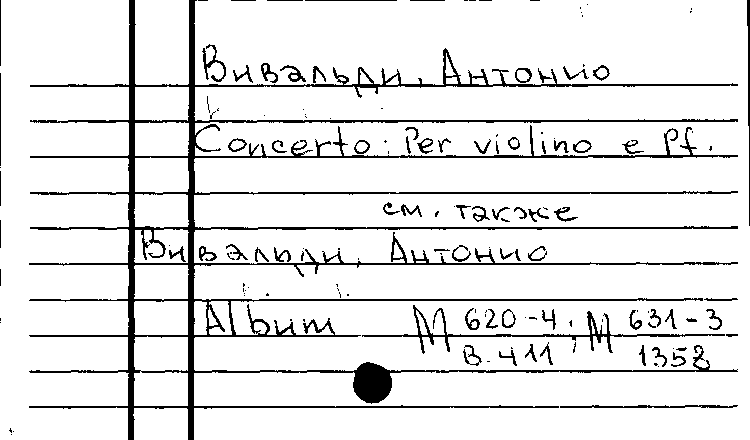 Вивальди, Антонио
Concerto: Per violino e Pf.
см. также
Вивальди, Антонио
Album M 620-4 ; M 631-3
В-411 1358